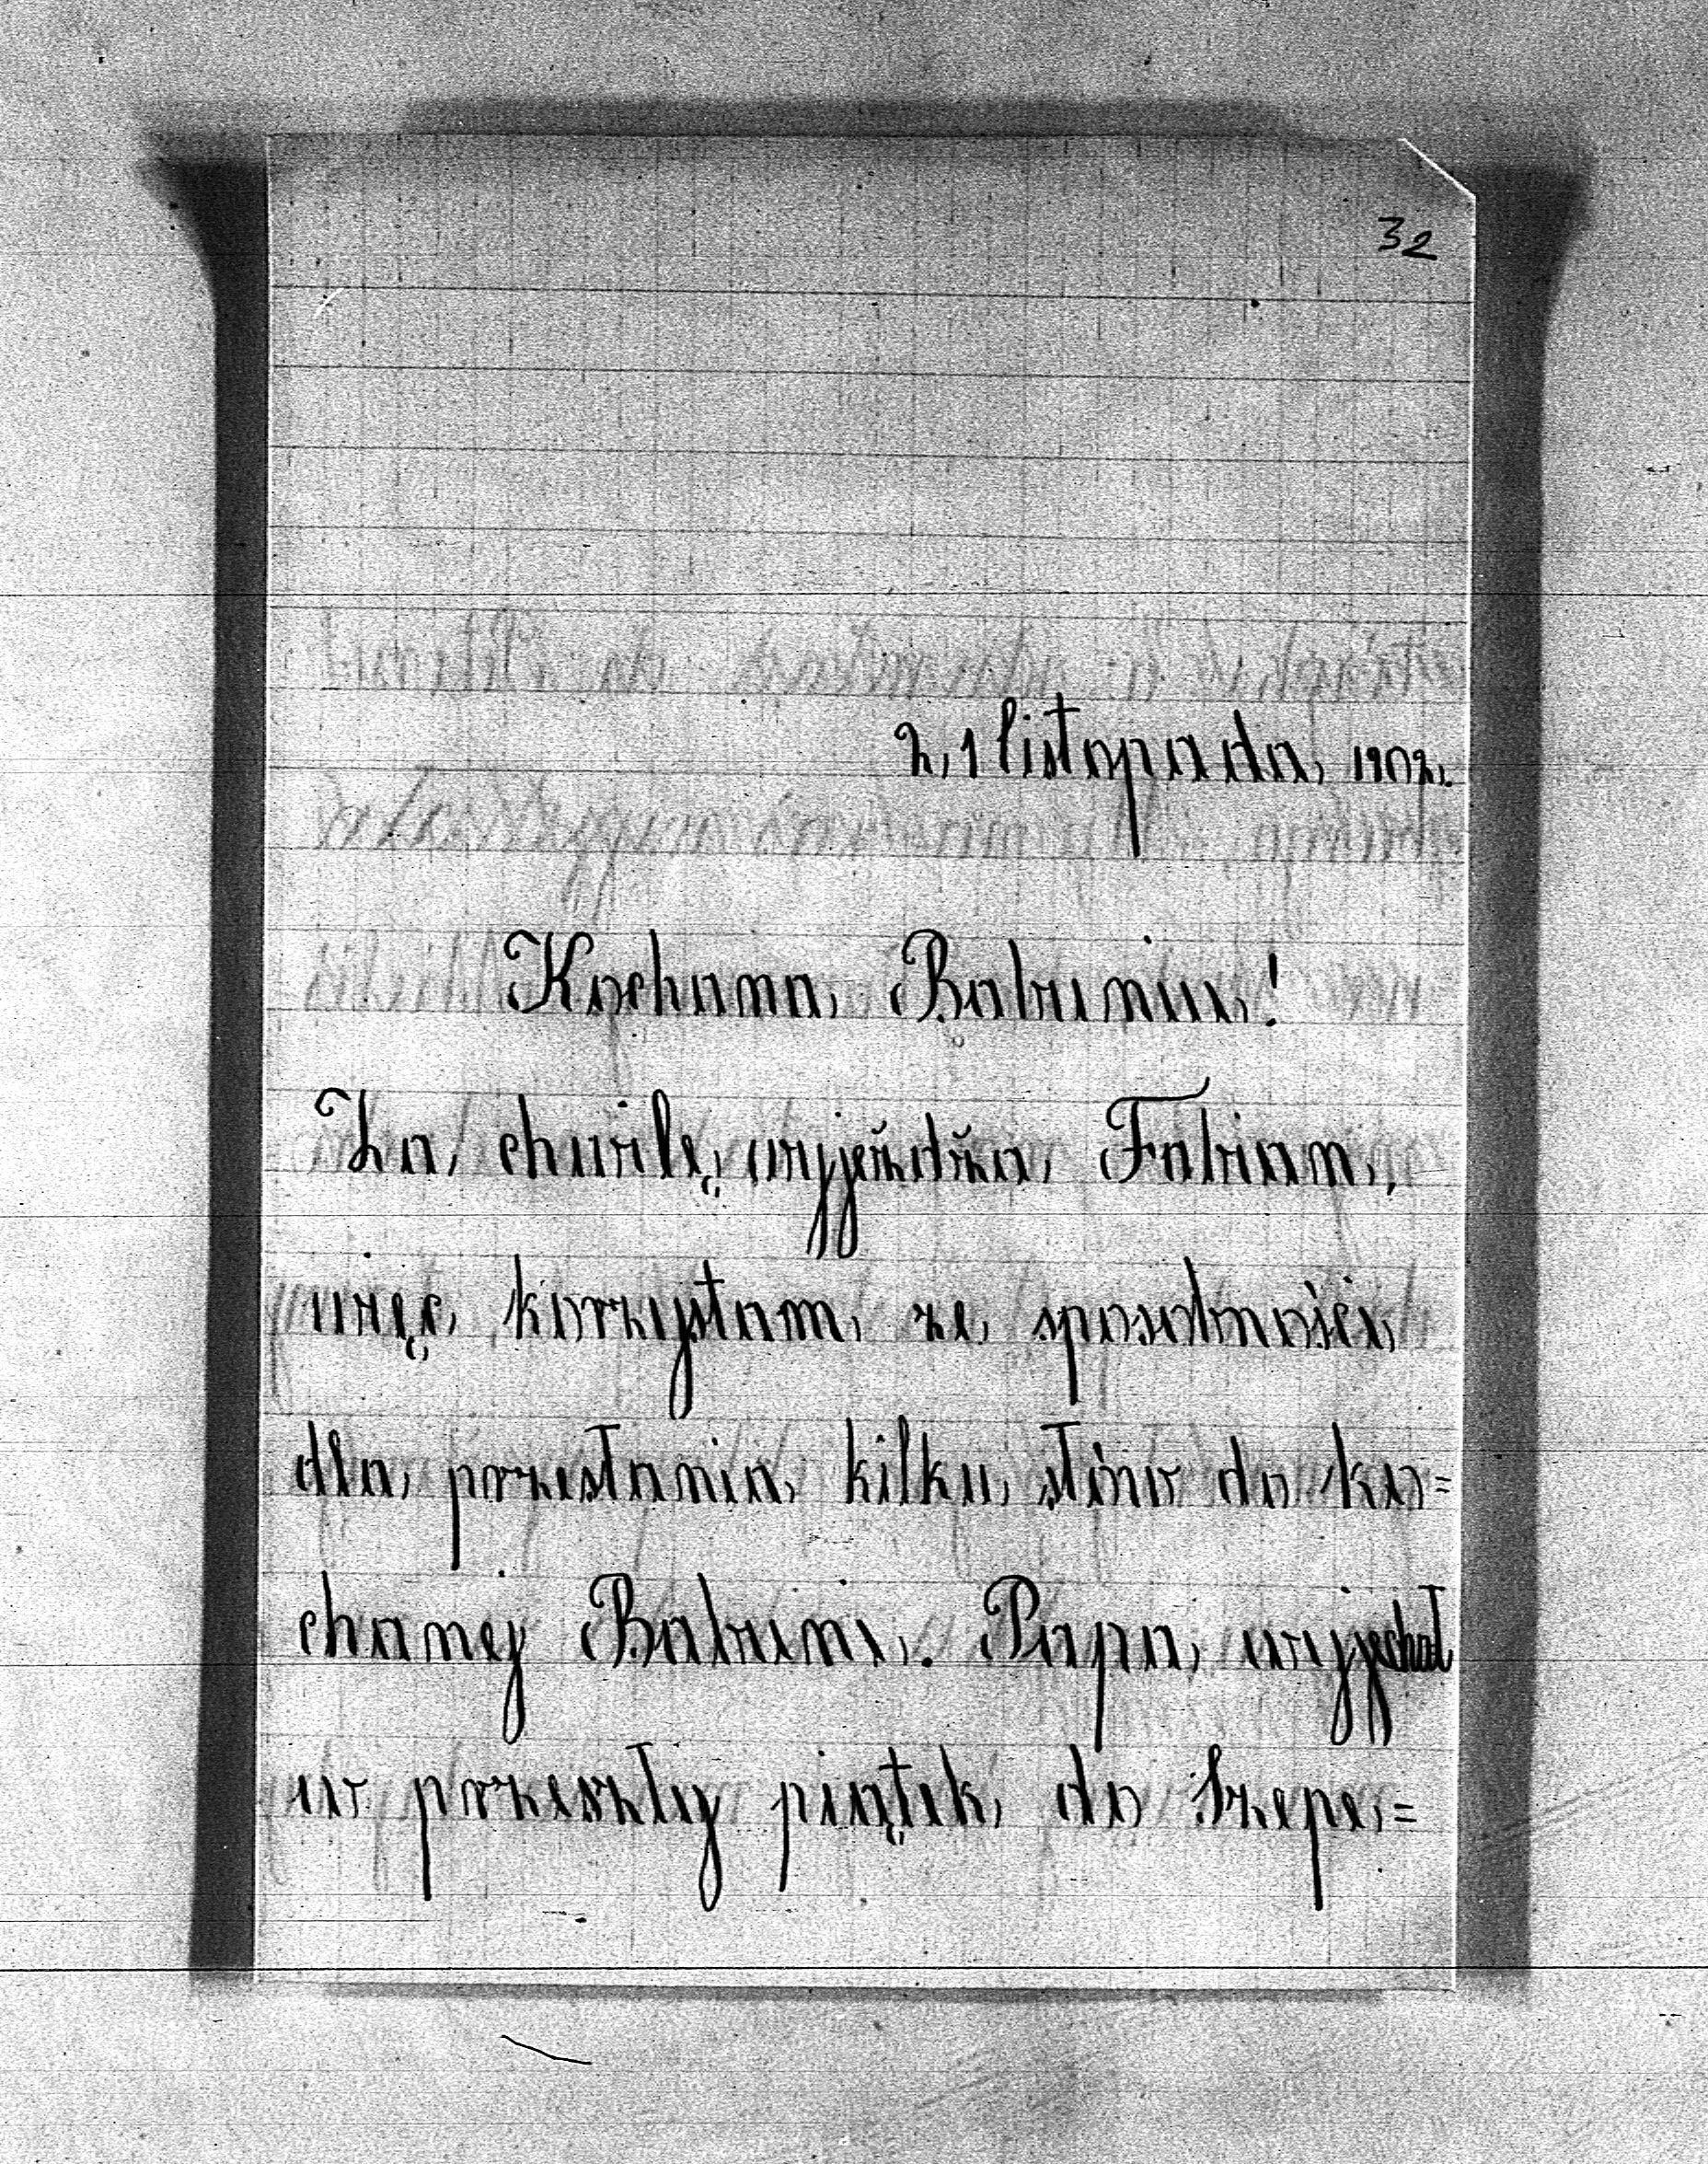 32
21 listopada, 1902.
Kochana Babuniu!
Za chwilę wyjeżdża Fabian,
więc korzystam ze sposobności
dla przesłania kilku słów do ko=
chanej Babuni. Papa wyjechał
w przeszły piątek do Szepe=